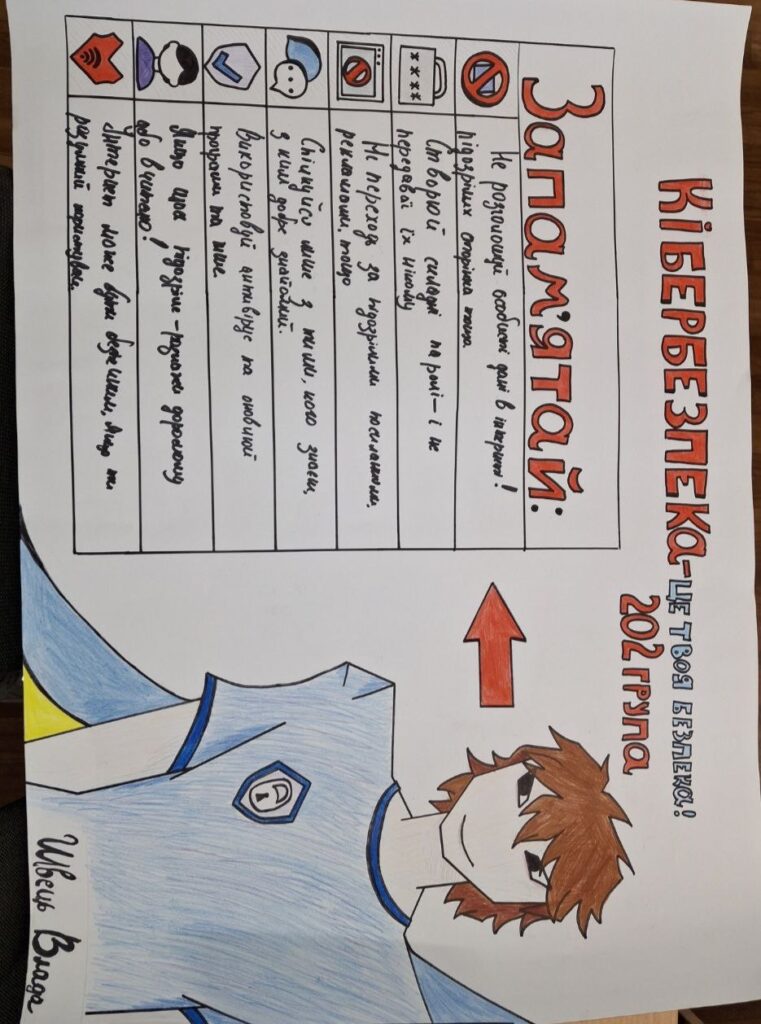 КІБЕРБЕЗПЕКА-ЦЕ ТВОЯ БЕЗПЕКА!
202 ГРУПА
Запам'ятай:
Не розголошуй особисті дані в інтернеті!
підозрілих сторінках тощо
****
Створюй складні паролі — і не
передавай їх нікому
Не переходь за підозрілими посиланнями,
рекламами, тощо
Спілкуйся лише з тими, кого знаєш,
з ким добре знайомий.
Використовуй антивірус та оновлюй
програми та інше.
Якщо щось підозріле — розкажи дорослому
або вчителю!
Інтернет може бути якщо ти
розумний користувач.
Швець Влада